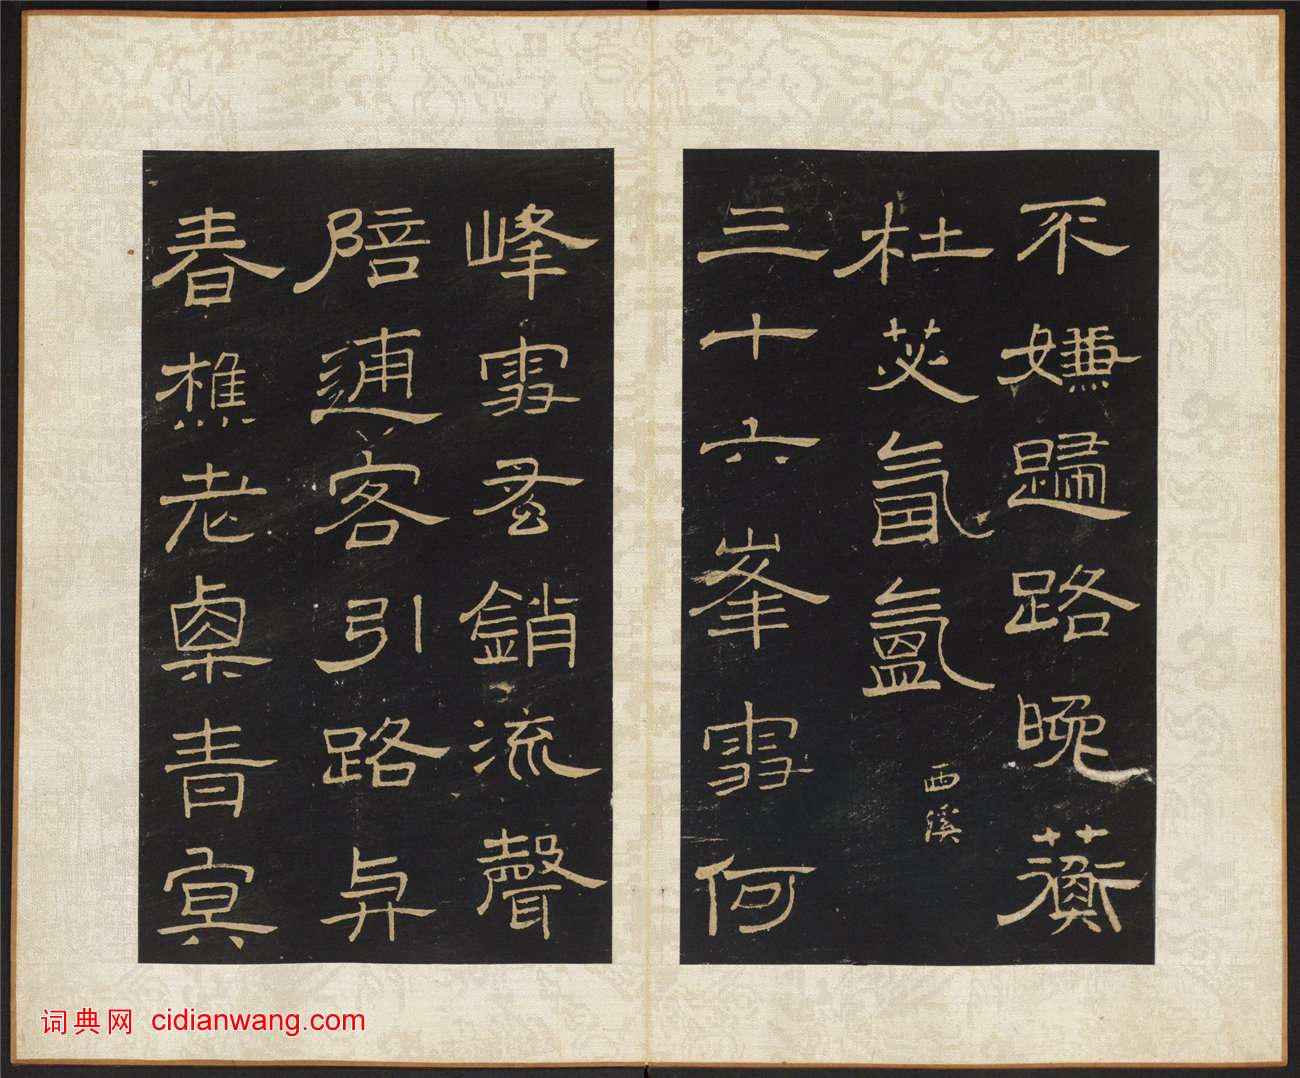 不嫌歸路晚蘅
杜苾氤氳
西溪
三十六峯雪何
峰雪蚤銷流聲
陪逋客引路與
春樵老㮚青冥
词典网 cidianwang.com